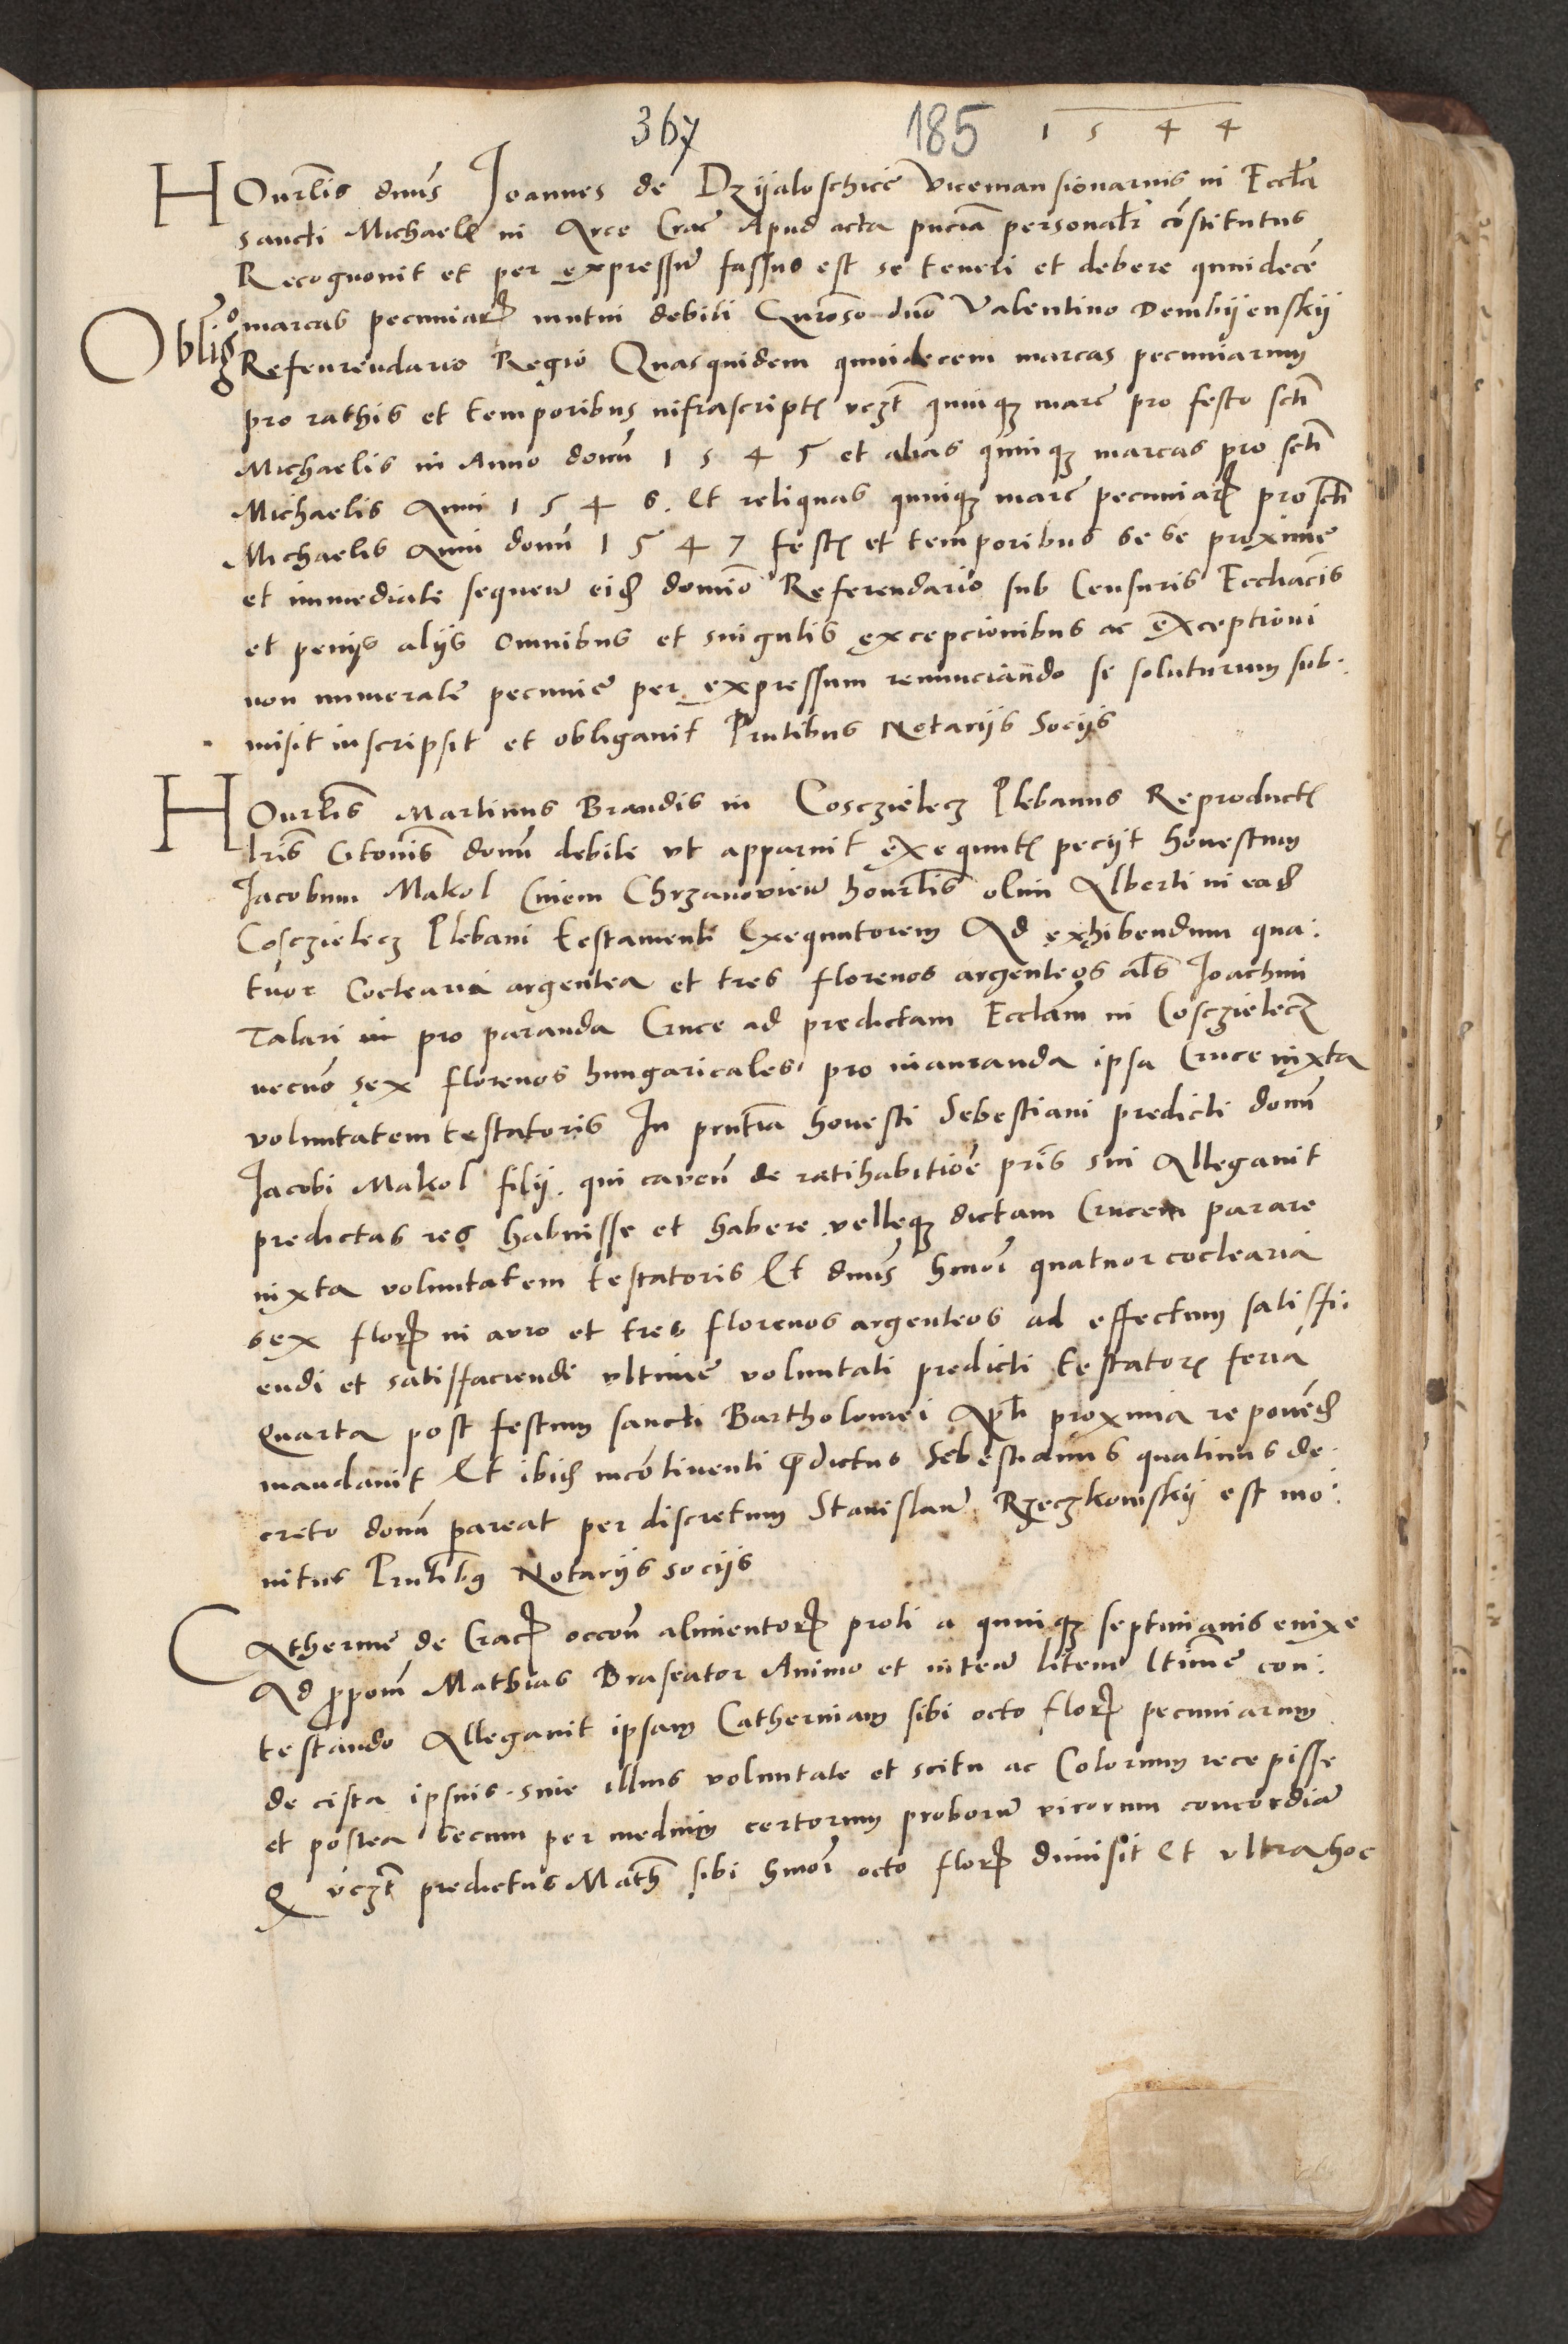 367 185 1 5 4 4
HOnrlis dnus Joannes de Dzyaloschice vicemansionarius in Eccla
sancti Michaelis in Arce Crac Apud acta pnciā personalr cōstitutus
Recognovit et per expressū fassus est se teneri et debere quindecē
Oblig° marcas pecuniarꝝ mutui debiti Gnroso dno Valentino Dembyenskij
Refenrendario Regio Quasquidem quindecem marcas pecuniarum
pro rathis et temporibus infrascriptis vczt quinqꝫ marc pro festo scti
Michaelis in Anno domi 1 5 4 5 et alias quinqꝫ marcas pro scti
Michaelis Anni 1 5 4 6. Et reliquas quinqꝫ marc pecuniarꝝ pro scti
Michaelis Anni domi 1 5 4 7 festis et temporibus se se proxime
et immediate sequen eidē domino Referendario sub Censuris Ecclīacis
et penis alijs omnibus et singulis excepcionibus ac exceptioni
non numerate pecunie per expressum renunciando se soluturum sub.
misit inscripsit et obligavit Pntibus Notarijs Socijs
HOnrlis Martinus Brandis in Cosczielecz Plebanus Reproductis
lris Citonis domī debite vt apparuit exequutis peciyt honestum
Jacobum Makol Civem Chrzanovien honrlis olim Alberti in eadē
Cosczielecz Plebani testamenti Exequutorem Ad exhibendum qua:
tuor coclearia argentea et tres florenos argenteos als Joachim
Talari in pro paranda Cruce ad predictam Ecclām in Cosczielecz
necnō sex florenos hungaricales pro inauranda ipsa Cruce iuxta
voluntatem testatoris In pntia honesti Sebestiani predicti domī
Jacobi Makol filij. qui caven de ratihabitiōe pris sui Allegavit
predictas res habuisse et habere velleqꝫ dictam Crucem parare
iuxta voluntatem testatoris Et dnus hmōi quatuor coclearia
sex florꝝ in auro et tres florenos argenteos ad effectum satisfi:
endi et satisfaciendi vltime voluntati predicti testatoris feria
quarta post festum sancti Bartholomei Apli proxima reponēdē
mandavit Et ibidē incōtinenti p̄dictus Sebestianus quatinus de:
creto domī pareat per discretum Stanislaū Rzeczkowskij est mo:
nitus Pntibꝫ Notarijs socijs
CAtherine de Cracꝝ occon alimentorꝝ proli a quinqꝫ septimanis enixe
Ad ꝓpom Mathias Braseator Animo et inten litem ltime con:
testando Allegavit ipsam Catherinam sibi octo florꝝ pecuniarum
de cista ipsius. sine illius voluntate et scitu ac Colorum recepisse
et postea secum per medium certorum proborū virorum concordiā
Q vczt predictus Math sibi hmōi octo florꝝ dimisit Et vltra hoc